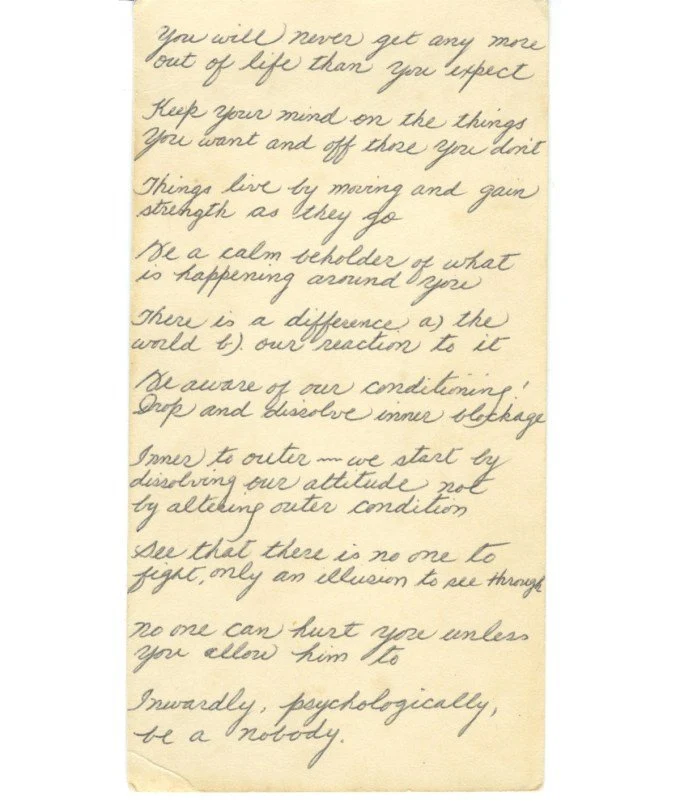 You will never get any more
out of life than you expect
Keep your mind on the things
you want and off those you don't
Things live by moving and gain
strength as they go
Be a calm beholder of what
is happening around you
There is a difference a) the
world b). our reaction to it
Be aware of our conditioning!
Drop and dissolve inner blockage
Inner to outer ~ we start by
dissolving our attitude not
by altering outer condition
See that there is no one to
fight, only an illusion to see through
No one can hurt you unless
you allow him to
Inwardly, psychologically,
be a nobody.